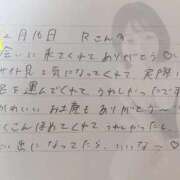 2月16日 Rさんへ
会いに来てくれてありがとう♡
サイト見て気になってくれて、実際に
名をんでくれて、うれしかったです
かわいい お土産も ありがとう〜
くさんほめてくれて うれしかったし、
い出になってたら、いいな〜♡